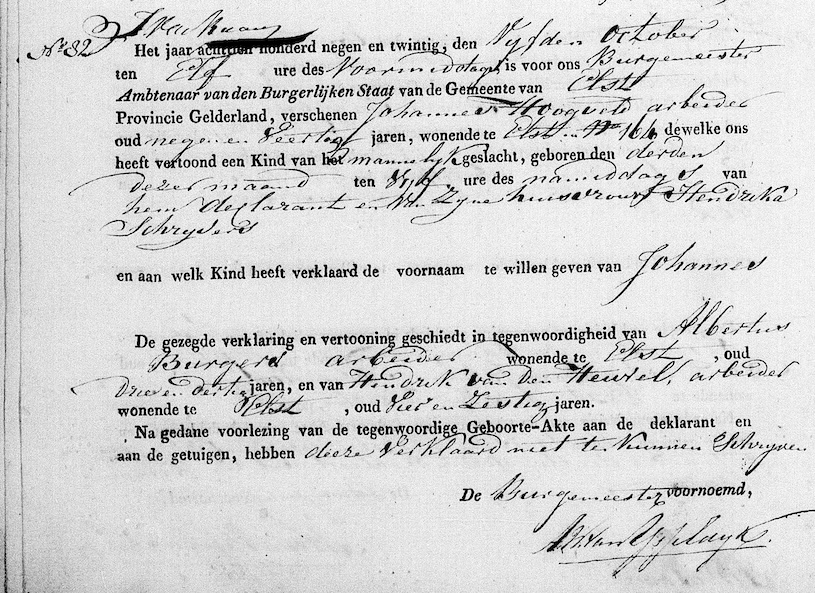 No 82
Het jaar achttien honderd negen en twintig, den Vyfden October
ten Elf ure des Voormiddags is voor ons Burgemeester
Ambtenaar van den Burgerlijken Staat van de Gemeente van Elst
Provincie Gelderland, verschenen Johannes Hoogveld arbeider
oud negen en Veertig jaren, wonende te Elst No 164 dewelke ons
heeft vertoond een Kind van het mannelyk geslacht, geboren den derden
dezer maand ten Vyf ure des namiddags van
hem declarant en van Zyne huisvrouw Hendrika
Schryvers
en aan welk Kind heeft verklaard de voornaam te willen geven van Johannes
De gezegde verklaring en vertooning geschiedt in tegenwoordigheid van Albertus
Burgers arbeider wonende te Elst, oud
Drie en dertig jaren, en van Hendrik van den Heuvel, arbeider
wonende te Elst, oud Vier en Zestig jaren.
Na gedane voorlezing van de tegenwoordige Geboorte-Akte aan de deklarant en
aan de getuigen, hebben deeze Verklaard niet te kunnen Schryven
De Burgemeester voornoemd,